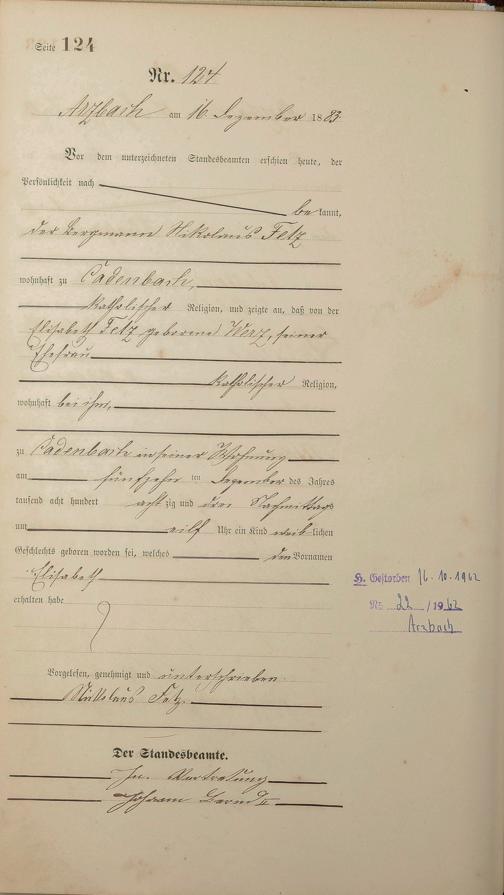 Seite 124
Nr. 124
Arzbach am 16 Dezember 1883
Vor dem unterzeichneten Standesbeamten erschien heute, der
Persönlichkeit nach
bekannt,
der Bergmann Nikolaus Fetz
wohnhaft zu Cadenbach,
katholischer Religion, und zeigte an, daß von der
Elisabeth Fetz geborene Werz, seiner
Ehefrau
katholischer Religion,
wohnhaft bei ihm,
zu Cadenbach in seiner Wohnung
am fünfzehn ten Dezember des Jahres
tausend acht hundert achtzig und drei Nachmittags
um eilf Uhr ein Kind weiblichen
Geschlechts geboren worden sei, welches den Vornamen
Elisabeth
erhalten habe
H. Gestorben 16.10.1962
Nr. 22 / 1962
Arzbach
Vorgelesen, genehmigt und unterschrieben
Nikolaus Fetz
Der Standesbeamte.
In Vertretung
Johann